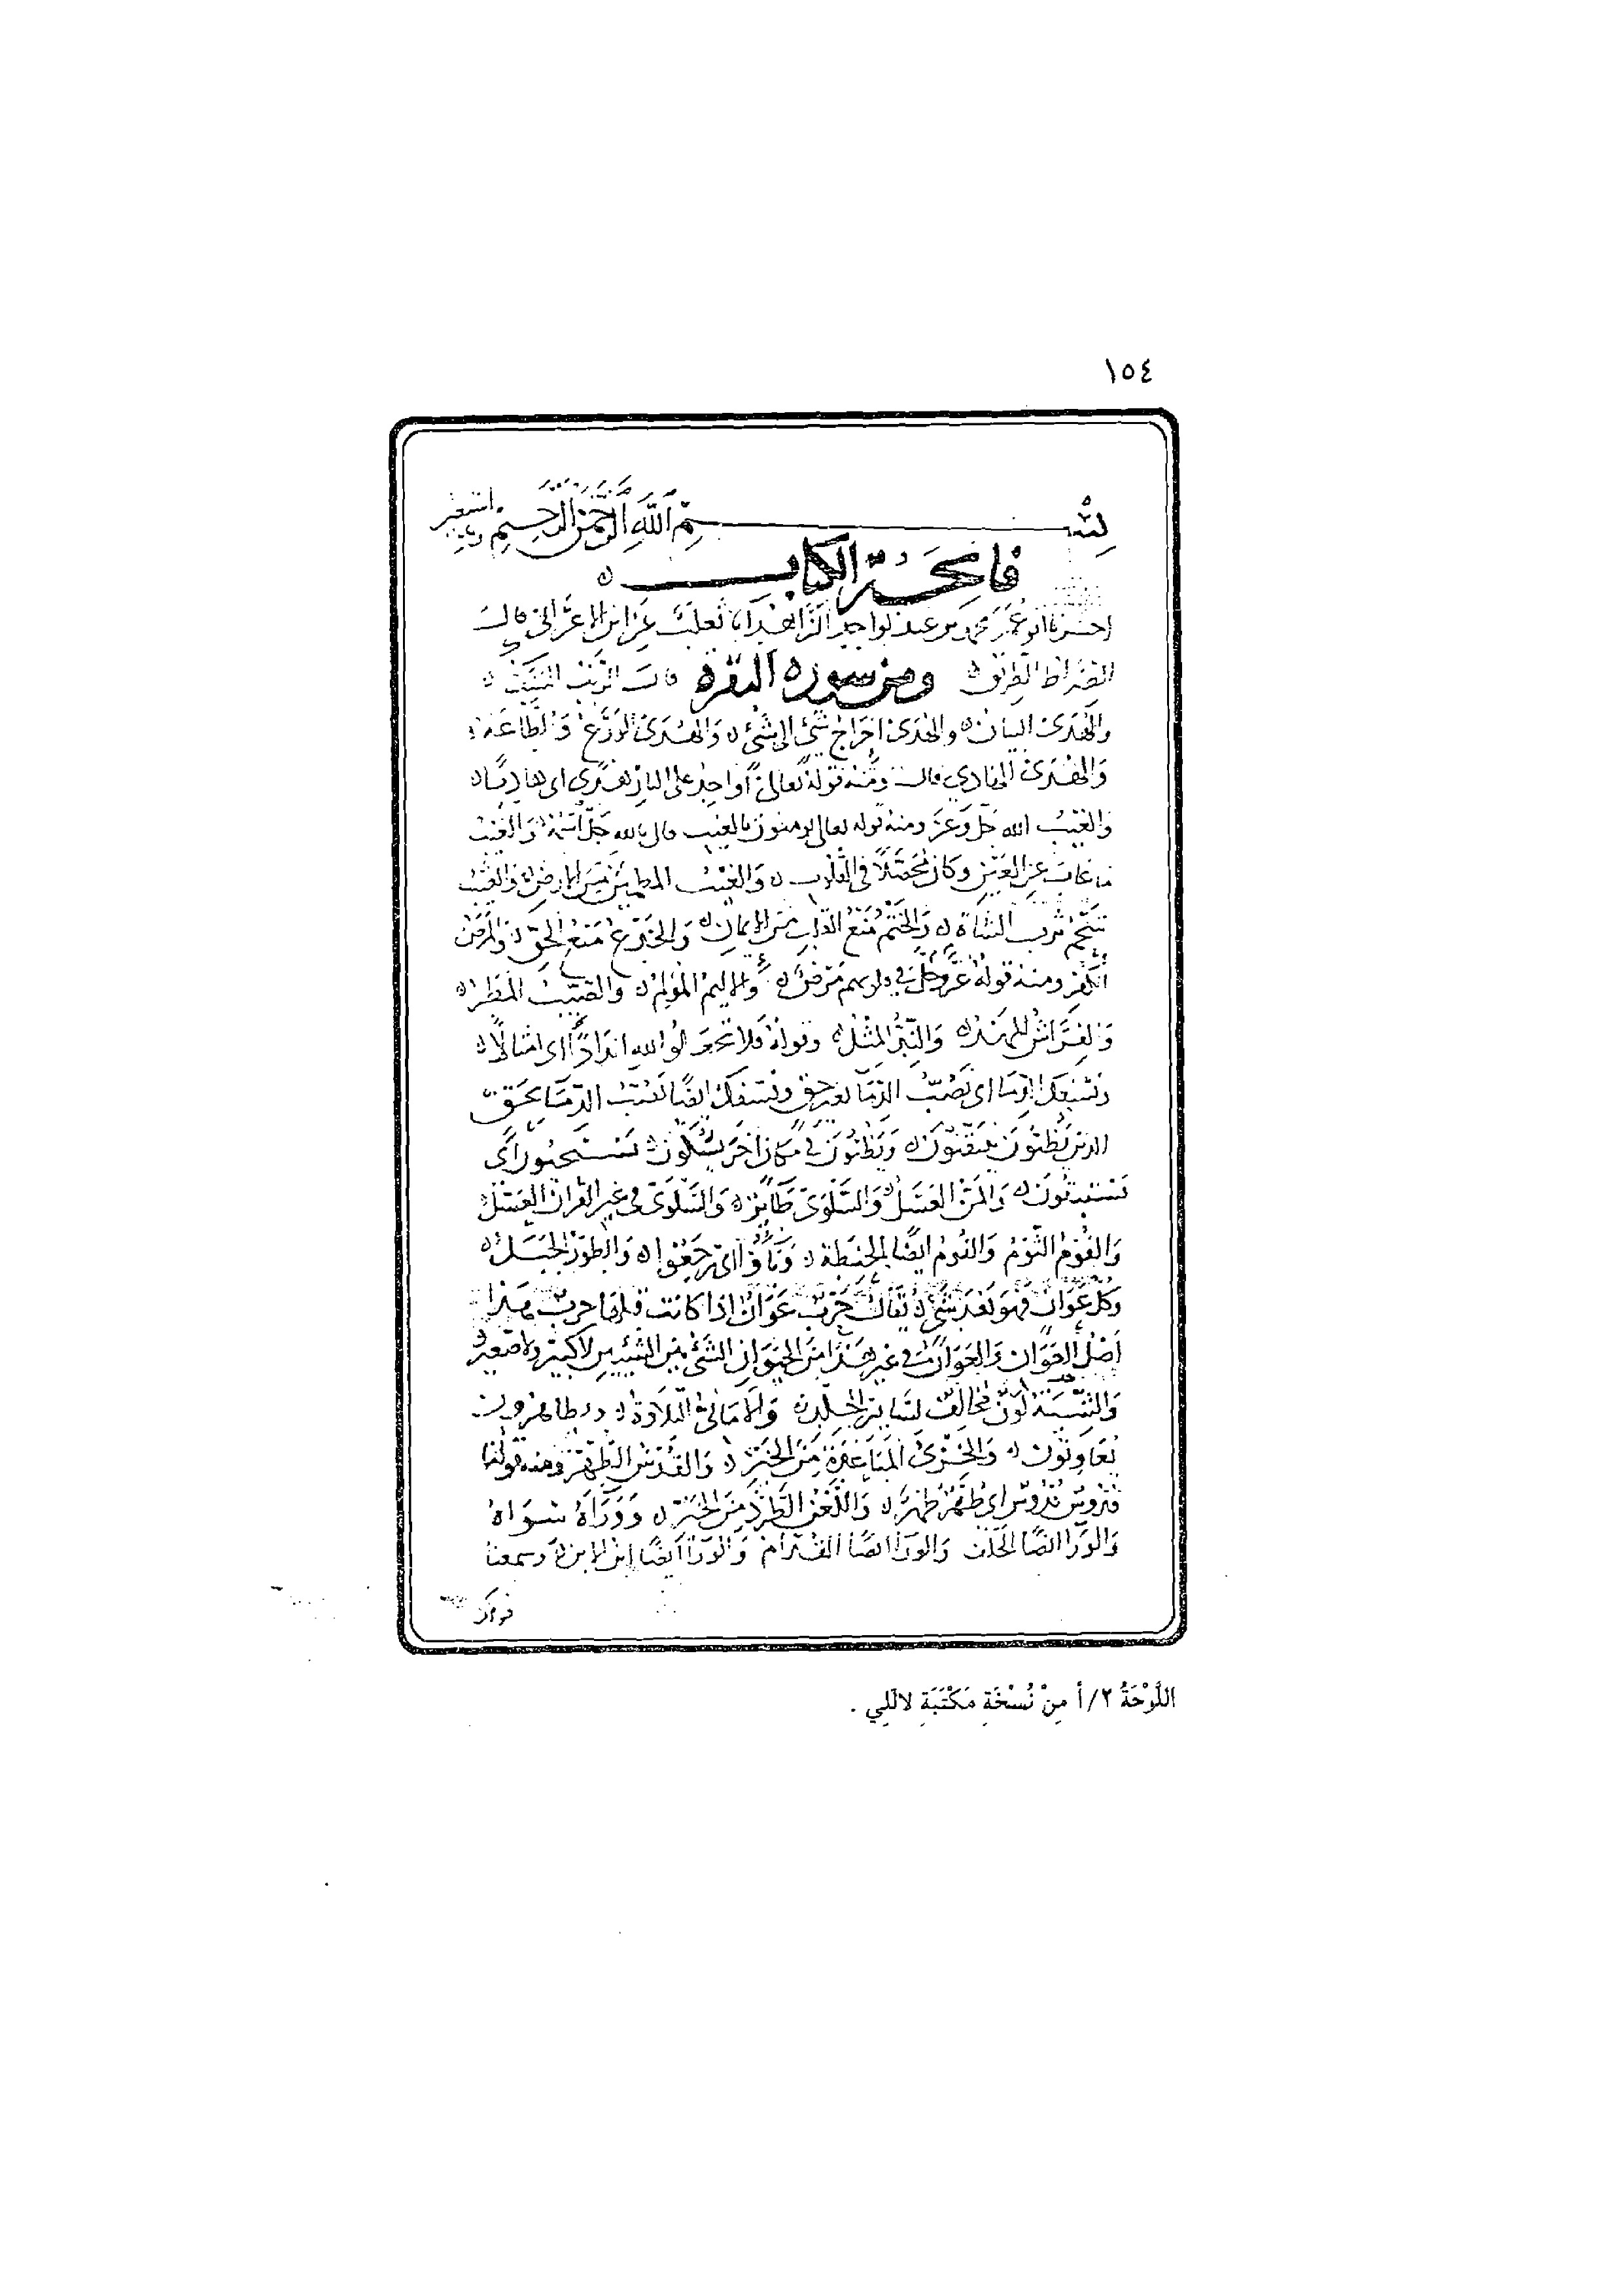 ١٥٤
بسم الله الرحمن الرحيم
فاتحة الكتاب
ابو عمر محمد بن عبد الواحد الزاهد ثعلب عن ابن الاعرابي قال
الصراط الطريق ومن سورة البقرة قال الريب
والهدى البيان والهدى اخراج شيء الى شيء والهدى الورع والطاعة
والهدى الهادي قال ومنه قوله تعالى أو اجد على النار هدى اي هاديا
والغيب الله جل وعز ومنه قوله تعالى يومنون بالغيب قال بالله جل والغيب
ما غاب عن العين وكان محصلا في القلوب والغيب المطمئن من الارض والغيب
شحم ثرب الشاة والختم منع القلب من الايمان والخدع منع الحق والمرض
الكفر ومنه قوله عز وجل في قلوبهم مرض والاليم المؤلم والصيب المطر
والفراش المهد والند المثل وقوله فلا تجعلوا لله اندادا اى امثالا
ونسفك الدما اى تصب الدما بغير حق وتسفك ايضا تصب الدما بحق
الذين يظنون يتيقنون ويظنون في مكان اخر يشكون يستحيون أي
يستبقون والمن العسل والسلوى طاير والسلوى في غير القران العسل
والفوم الثوم والفوم ايضا الحنطة وباؤا اى رجعوا والطور الجبل
وكل عوان فهو بعد شيء يقال حرب عوان اذا كانت قبلها حرب فهذا
أصل العوان والعوان في غير هذا من الحيوان الشيء بين الشيئين لا كبير ولا صغير
والشية لون مخالف لسائر الجلد والاماني التلاوة تظاهرون
تعاونون والخزي المباعدة من الخير والقدس الطهر ومنه قولنا
قدوس قدوس اي طهر طهر واللعن الطرد من الخير ووراه سواه
والورا ايضا الخلف والورا ايضا القدام والورا أيضا ابن الابن وسمعنا
اللَّوْحَةُ ٢/أ مِنْ نُسْخَةِ مَكْتَبَةِ لالَلِي .